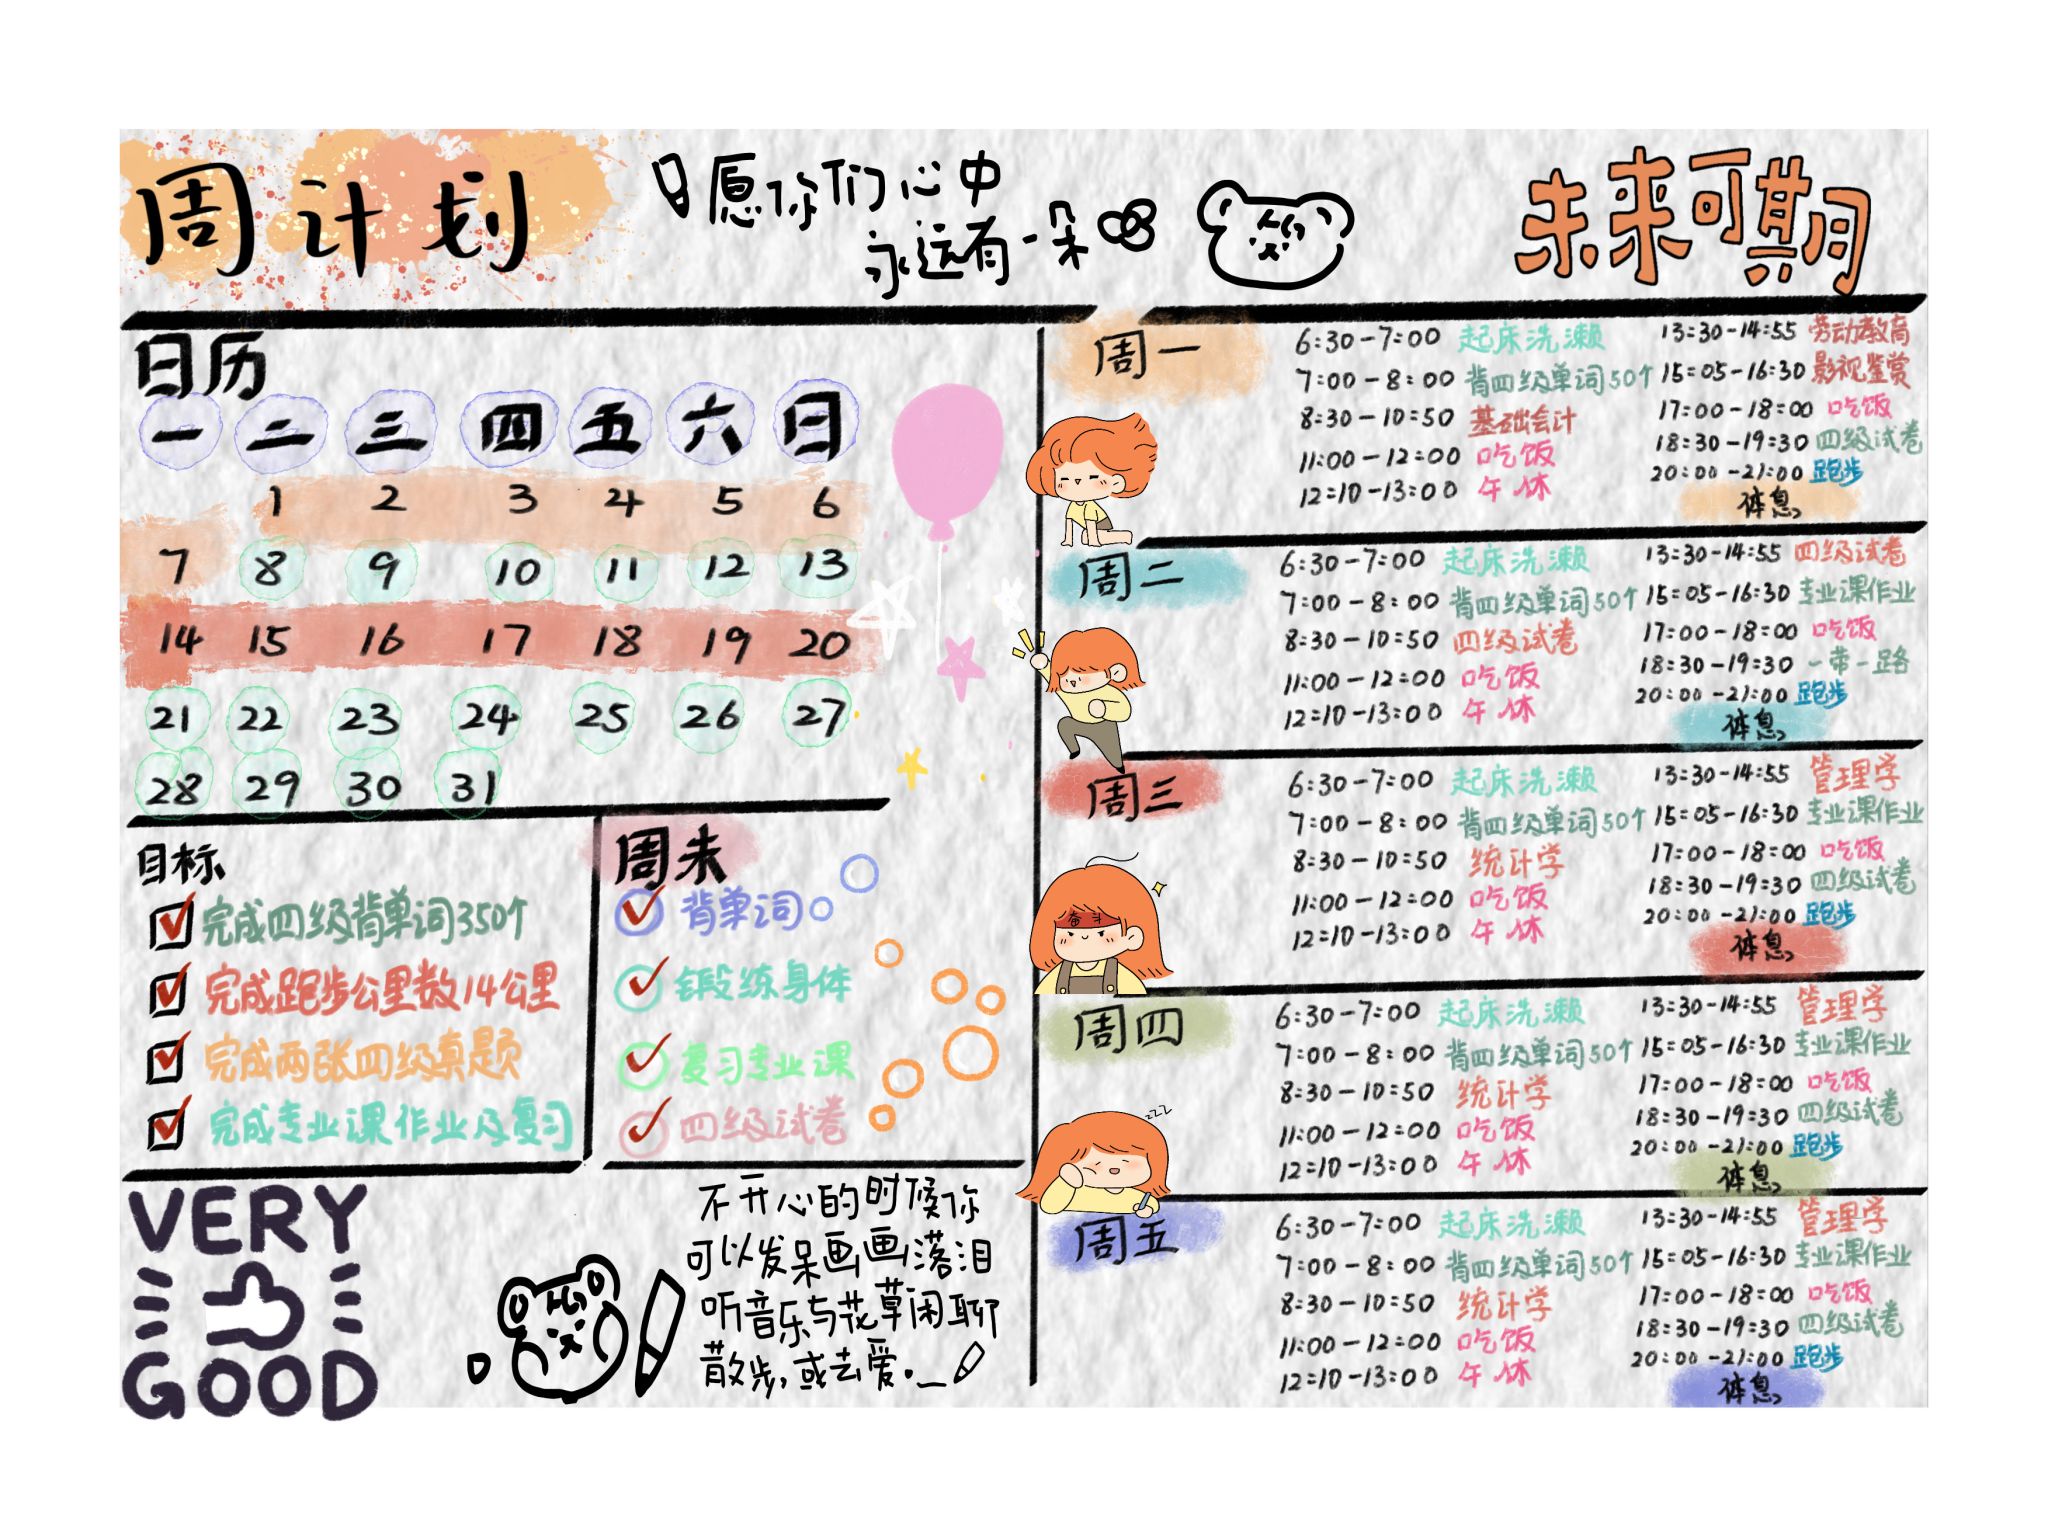 周计划
愿你们心中
永远有一朵
未来可期
日历
一 二 三 四 五 六 日
1 2 3 4 5 6
7 8 9 10 11 12 13
14 15 16 17 18 19 20
21 22 23 24 25 26 27
28 29 30 31
目标
完成四级背单词350个
完成跑步公里数14公里
完成两张四级真题
完成专业课作业及复习
周末
背单词
锻炼身体
复习专业课
四级试卷
VERY
GOOD
不开心的时候你
可以发呆画画落泪
听音乐与花草闲聊
散步,或去爱。
周一
6:30-7:00 起床洗濑
7:00-8:00 背四级单词50个
8:30-10:50 基础会计
11:00-12:00 吃饭
12:10-13:00 午休
13:30-14:55 劳动教育
15:05-16:30 影视鉴赏
17:00-18:00 吃饭
18:30-19:30 四级试卷
20:00-21:00 跑步
休息
周二
6:30-7:00 起床洗濑
7:00-8:00 背四级单词50个
8:30-10:50 四级试卷
11:00-12:00 吃饭
12:10-13:00 午休
13:30-14:55 四级试卷
15:05-16:30 专业课作业
17:00-18:00 吃饭
18:30-19:30 一带一路
20:00-21:00 跑步
休息
周三
奋斗
6:30-7:00 起床洗濑
7:00-8:00 背四级单词50个
8:30-10:50 统计学
11:00-12:00 吃饭
12:10-13:00 午休
13:30-14:55 管理学
15:05-16:30 专业课作业
17:00-18:00 吃饭
18:30-19:30 四级试卷
20:00-21:00 跑步
休息
周四
zzz
6:30-7:00 起床洗濑
7:00-8:00 背四级单词50个
8:30-10:50 统计学
11:00-12:00 吃饭
12:10-13:00 午休
13:30-14:55 管理学
15:05-16:30 专业课作业
17:00-18:00 吃饭
18:30-19:30 四级试卷
20:00-21:00 跑步
休息
周五
6:30-7:00 起床洗濑
7:00-8:00 背四级单词50个
8:30-10:50 统计学
11:00-12:00 吃饭
12:10-13:00 午休
13:30-14:55 管理学
15:05-16:30 专业课作业
17:00-18:00 吃饭
18:30-19:30 四级试卷
20:00-21:00 跑步
休息